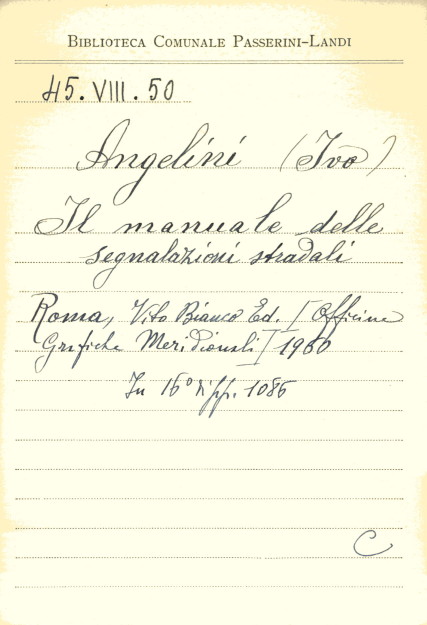 BIBLIOTECA COMUNALE PASSERINI-LANDI
45.VIII.50
Angelini (Ivo)
Il manuale delle
segnalazioni stradali
Roma, Vito Bianco Ed. [Officine
Grafiche Meridionali] 1960
In 16° di pp. 1086
C